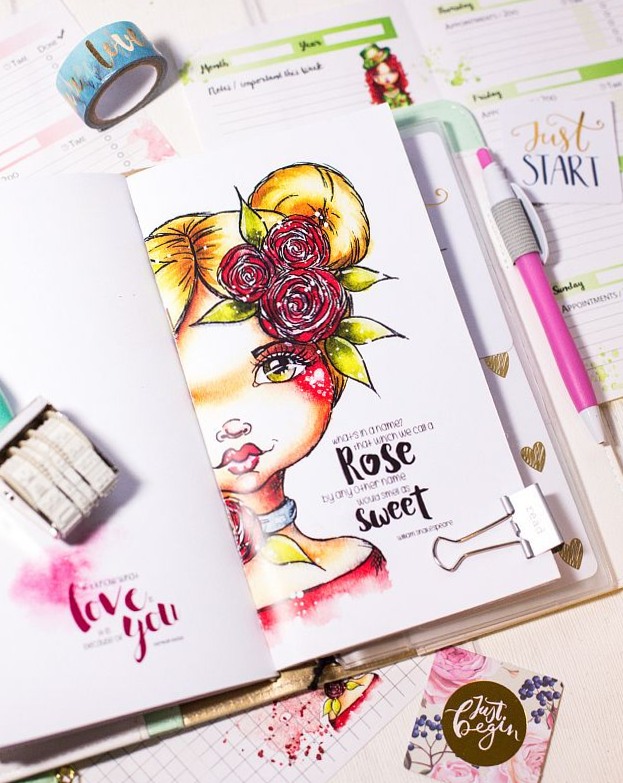 love
TIME
DONE
TIME
Month
Year
Notes / important this week
Thursday
APPOINTMENTS /
Friday
Just
START
Sunday
APPOINTMENTS /
what's in a name?
that which we call a
Rose
by any other name
would smell as
sweet
william shakespeare
read
love
you
because of
Just
begin